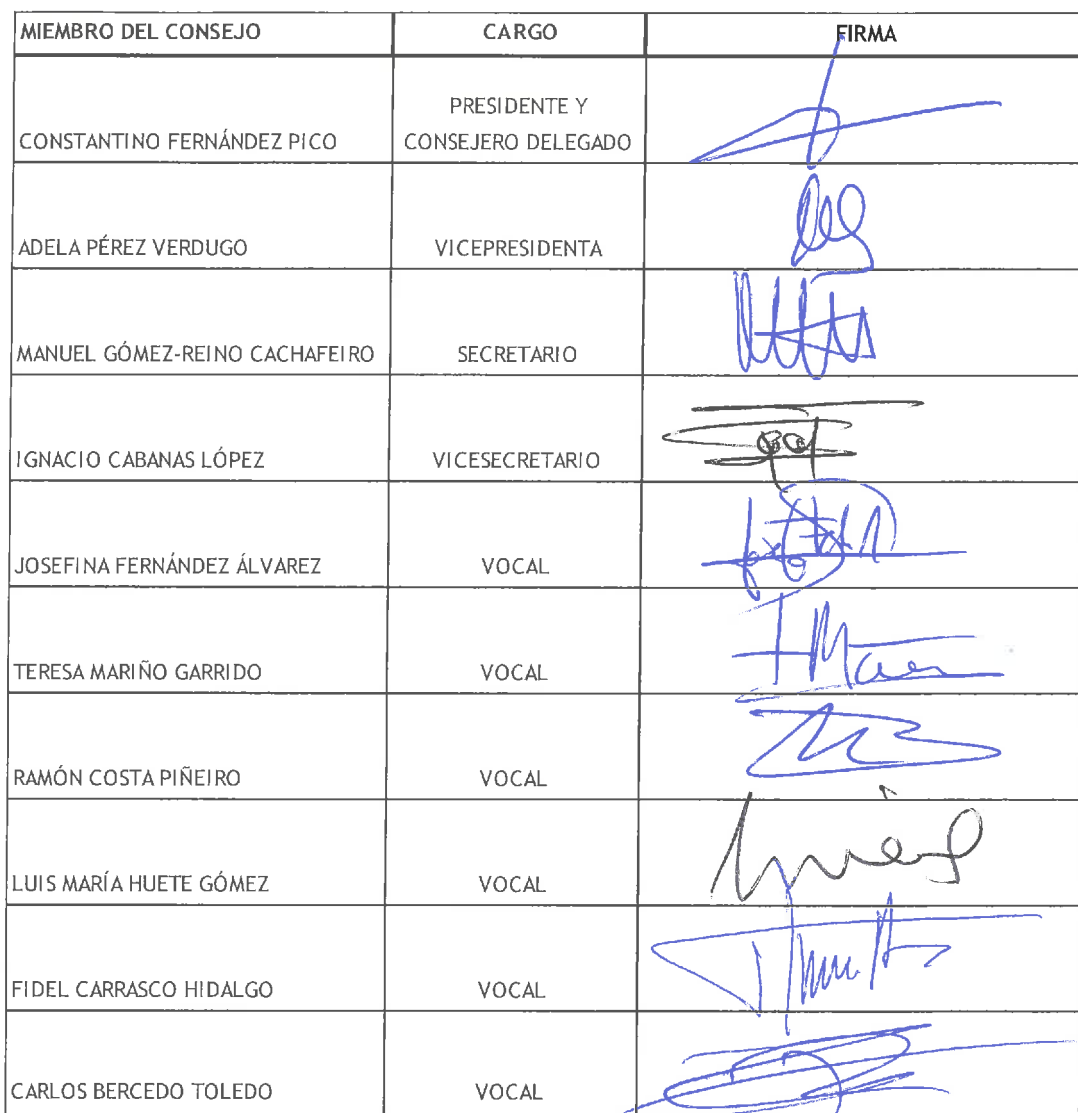 MIEMBRO DEL CONSEJO CARGO FIRMA
PRESIDENTE Y
CONSTANTINO FERNÁNDEZ PICO CONSEJERO DELEGADO
ADELA PÉREZ VERDUGO VICEPRESIDENTA
MANUEL GÓMEZ-REINO CACHAFEIRO SECRETARIO
IGNACIO CABANAS LÓPEZ VICESECRETARIO
JOSEFINA FERNÁNDEZ ÁLVAREZ VOCAL
TERESA MARIÑO GARRIDO VOCAL
RAMÓN COSTA PIÑEIRO VOCAL
LUIS MARÍA HUETE GÓMEZ VOCAL
FIDEL CARRASCO HIDALGO VOCAL
CARLOS BERCEDO TOLEDO VOCAL